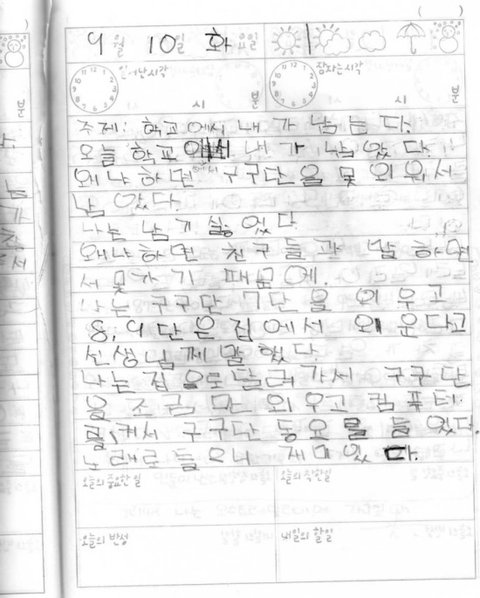 9월 10일 화요일
일어난시각
잠자는시각
시 분
시 분
주제: 학교에서 내가 남는다.
오늘 학교에서 내가 남았다.
왜냐하면 구구단을 못 외워서
남았다.
나는 남기 싫었다
왜냐하면 친구들과 말하면
서 못가기 때문에.
나는 구구단 7단을 외우고
8, 9단은 집에서 왜운다고
선생님께 말했다
나는 집으로 달려가서 구구단
을 조금만 외우고 컴퓨터
를 켜서 구구단 동요를 들었다.
노래로 들으니 재미있다.
오늘의 중요한 일
오늘의 착한일
오늘의 반성
내일의 할일